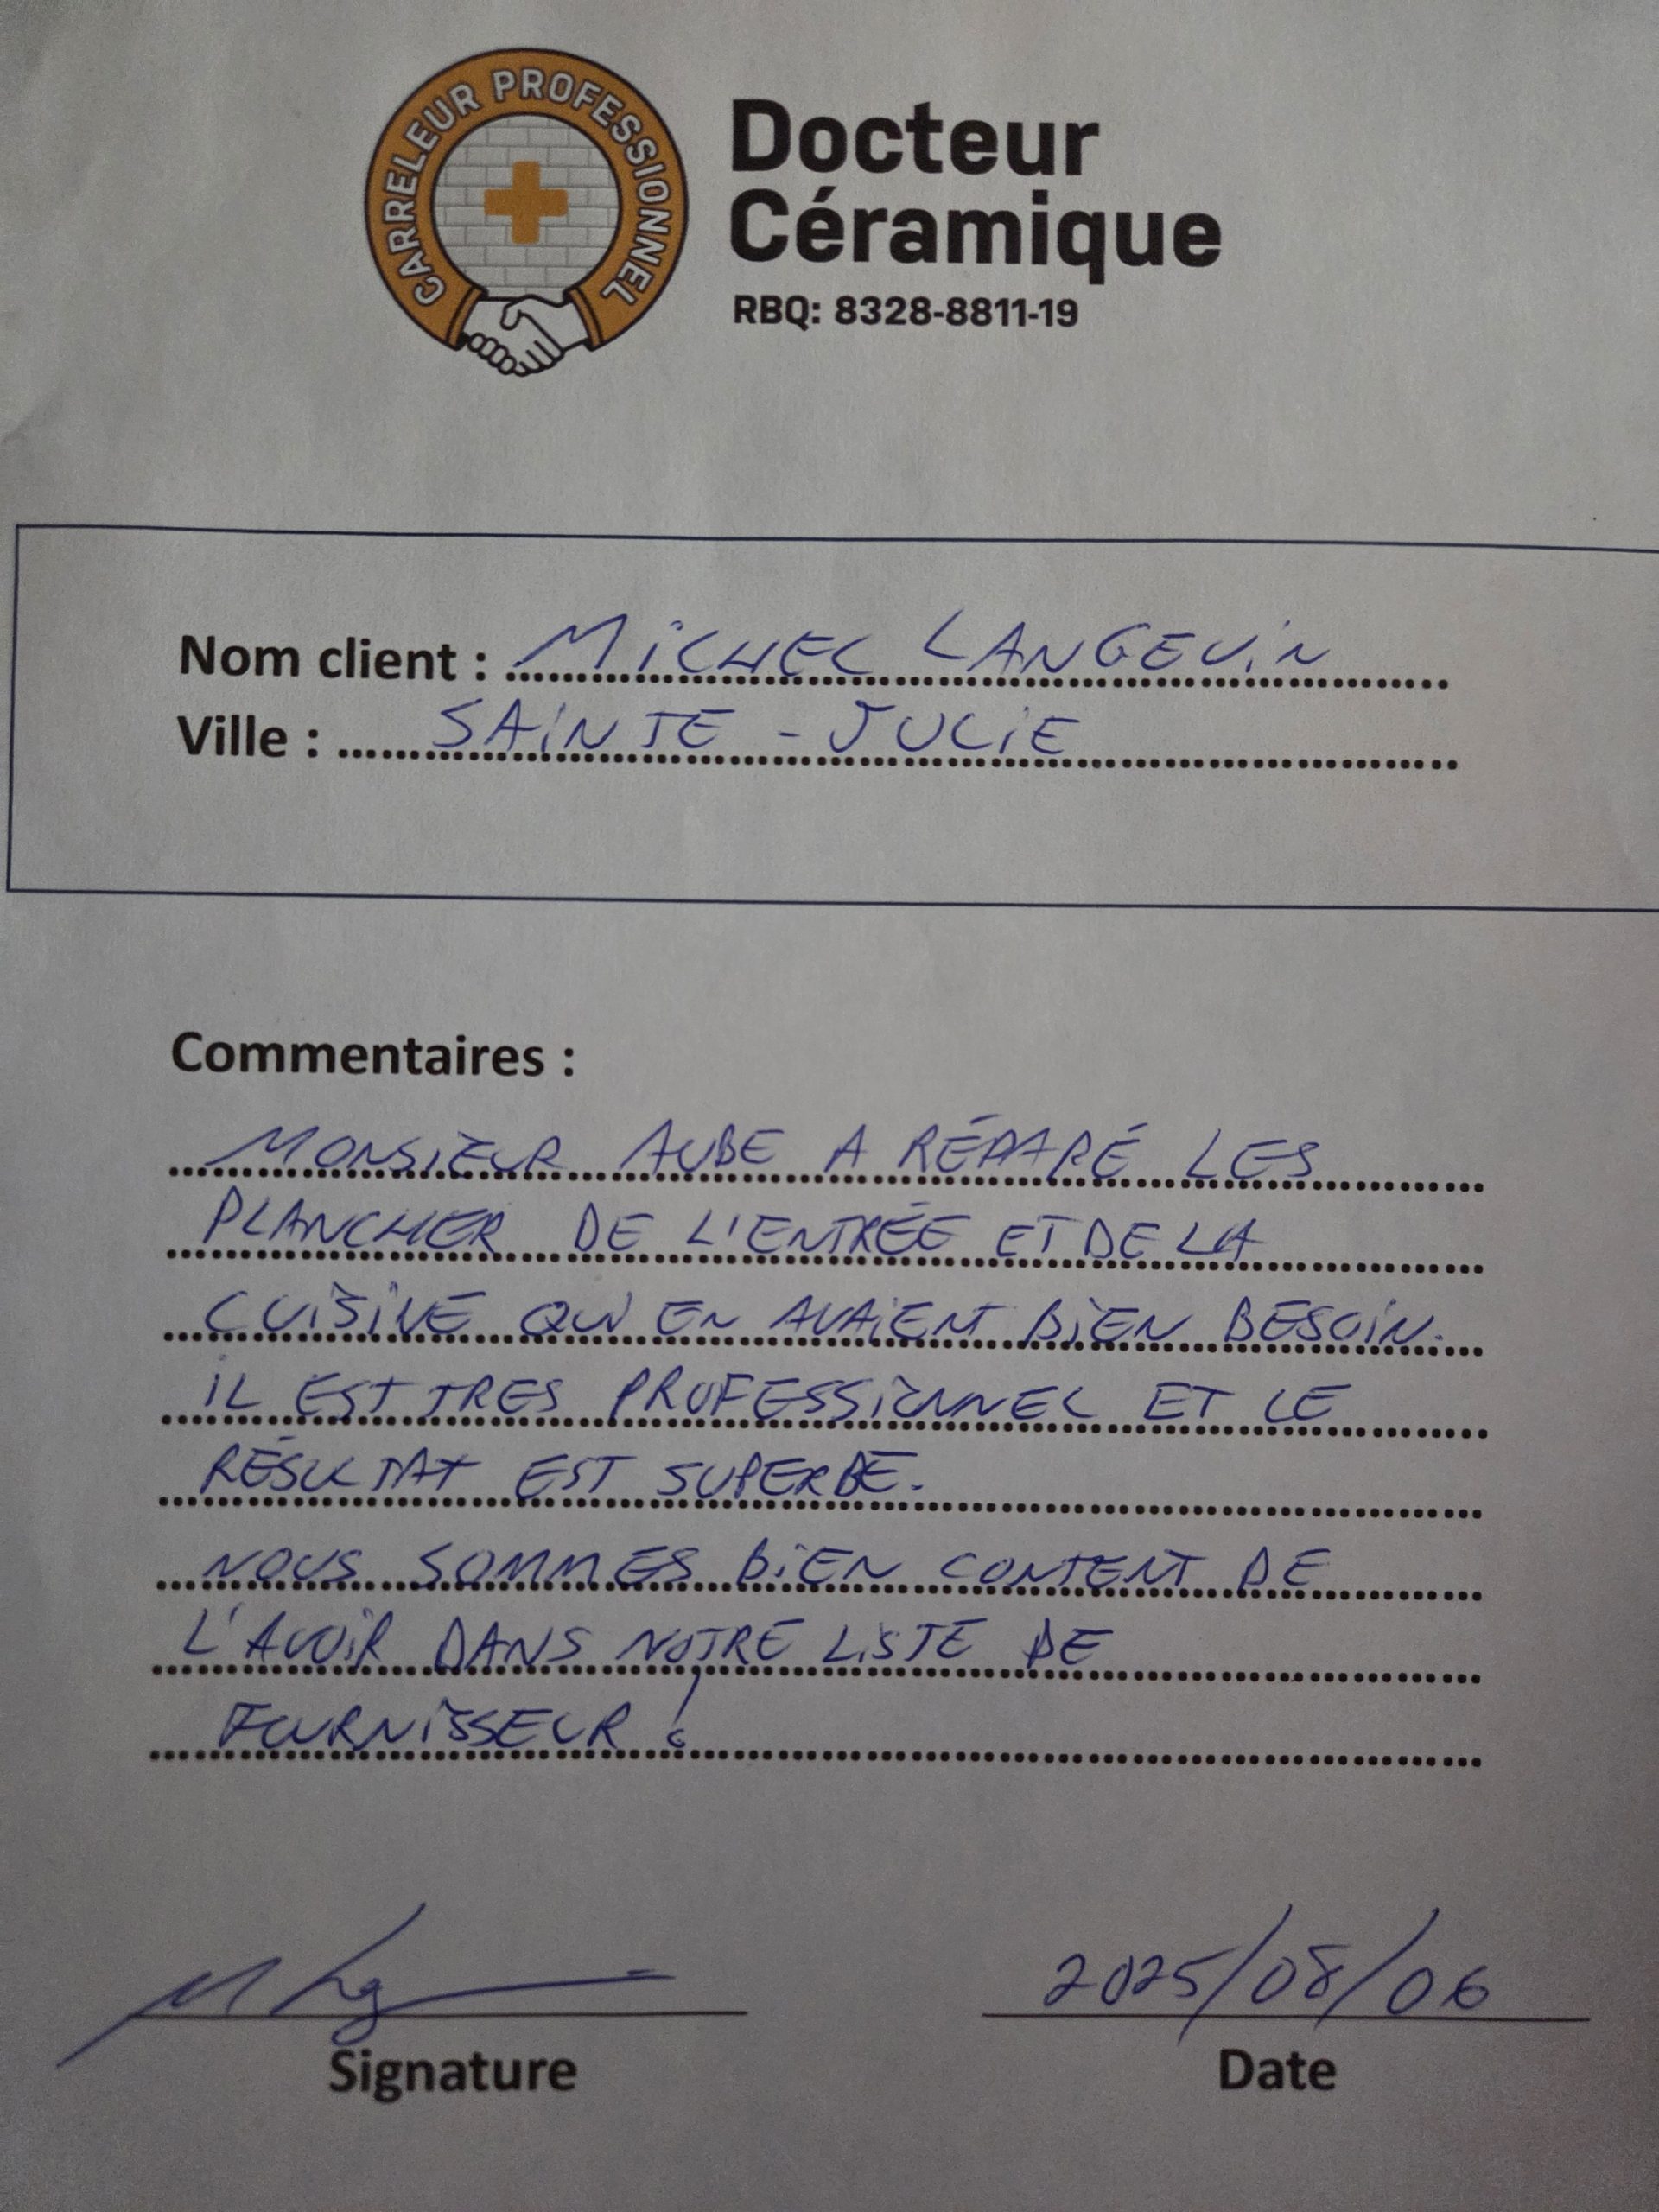 CARRELEUR PROFESSIONNEL
Docteur
Céramique
RBQ: 8328-8811-19
Nom client : MICHEL LANGEVIN
Ville : SAINTE - JULIE
Commentaires :
MONSIEUR AUBE A RÉPARÉ LES
PLANCHER DE L'ENTRÉE ET DE LA
CUISINE QUI EN AVAIENT BIEN BESOIN.
IL EST TRES PROFESSIONNEL ET LE
RÉSULTAT EST SUPERBE.
NOUS SOMMES BIEN CONTENT DE
L'AVOIR DANS NOTRE LISTE DE
FOURNISSEUR !
Signature
2025/08/06
Date